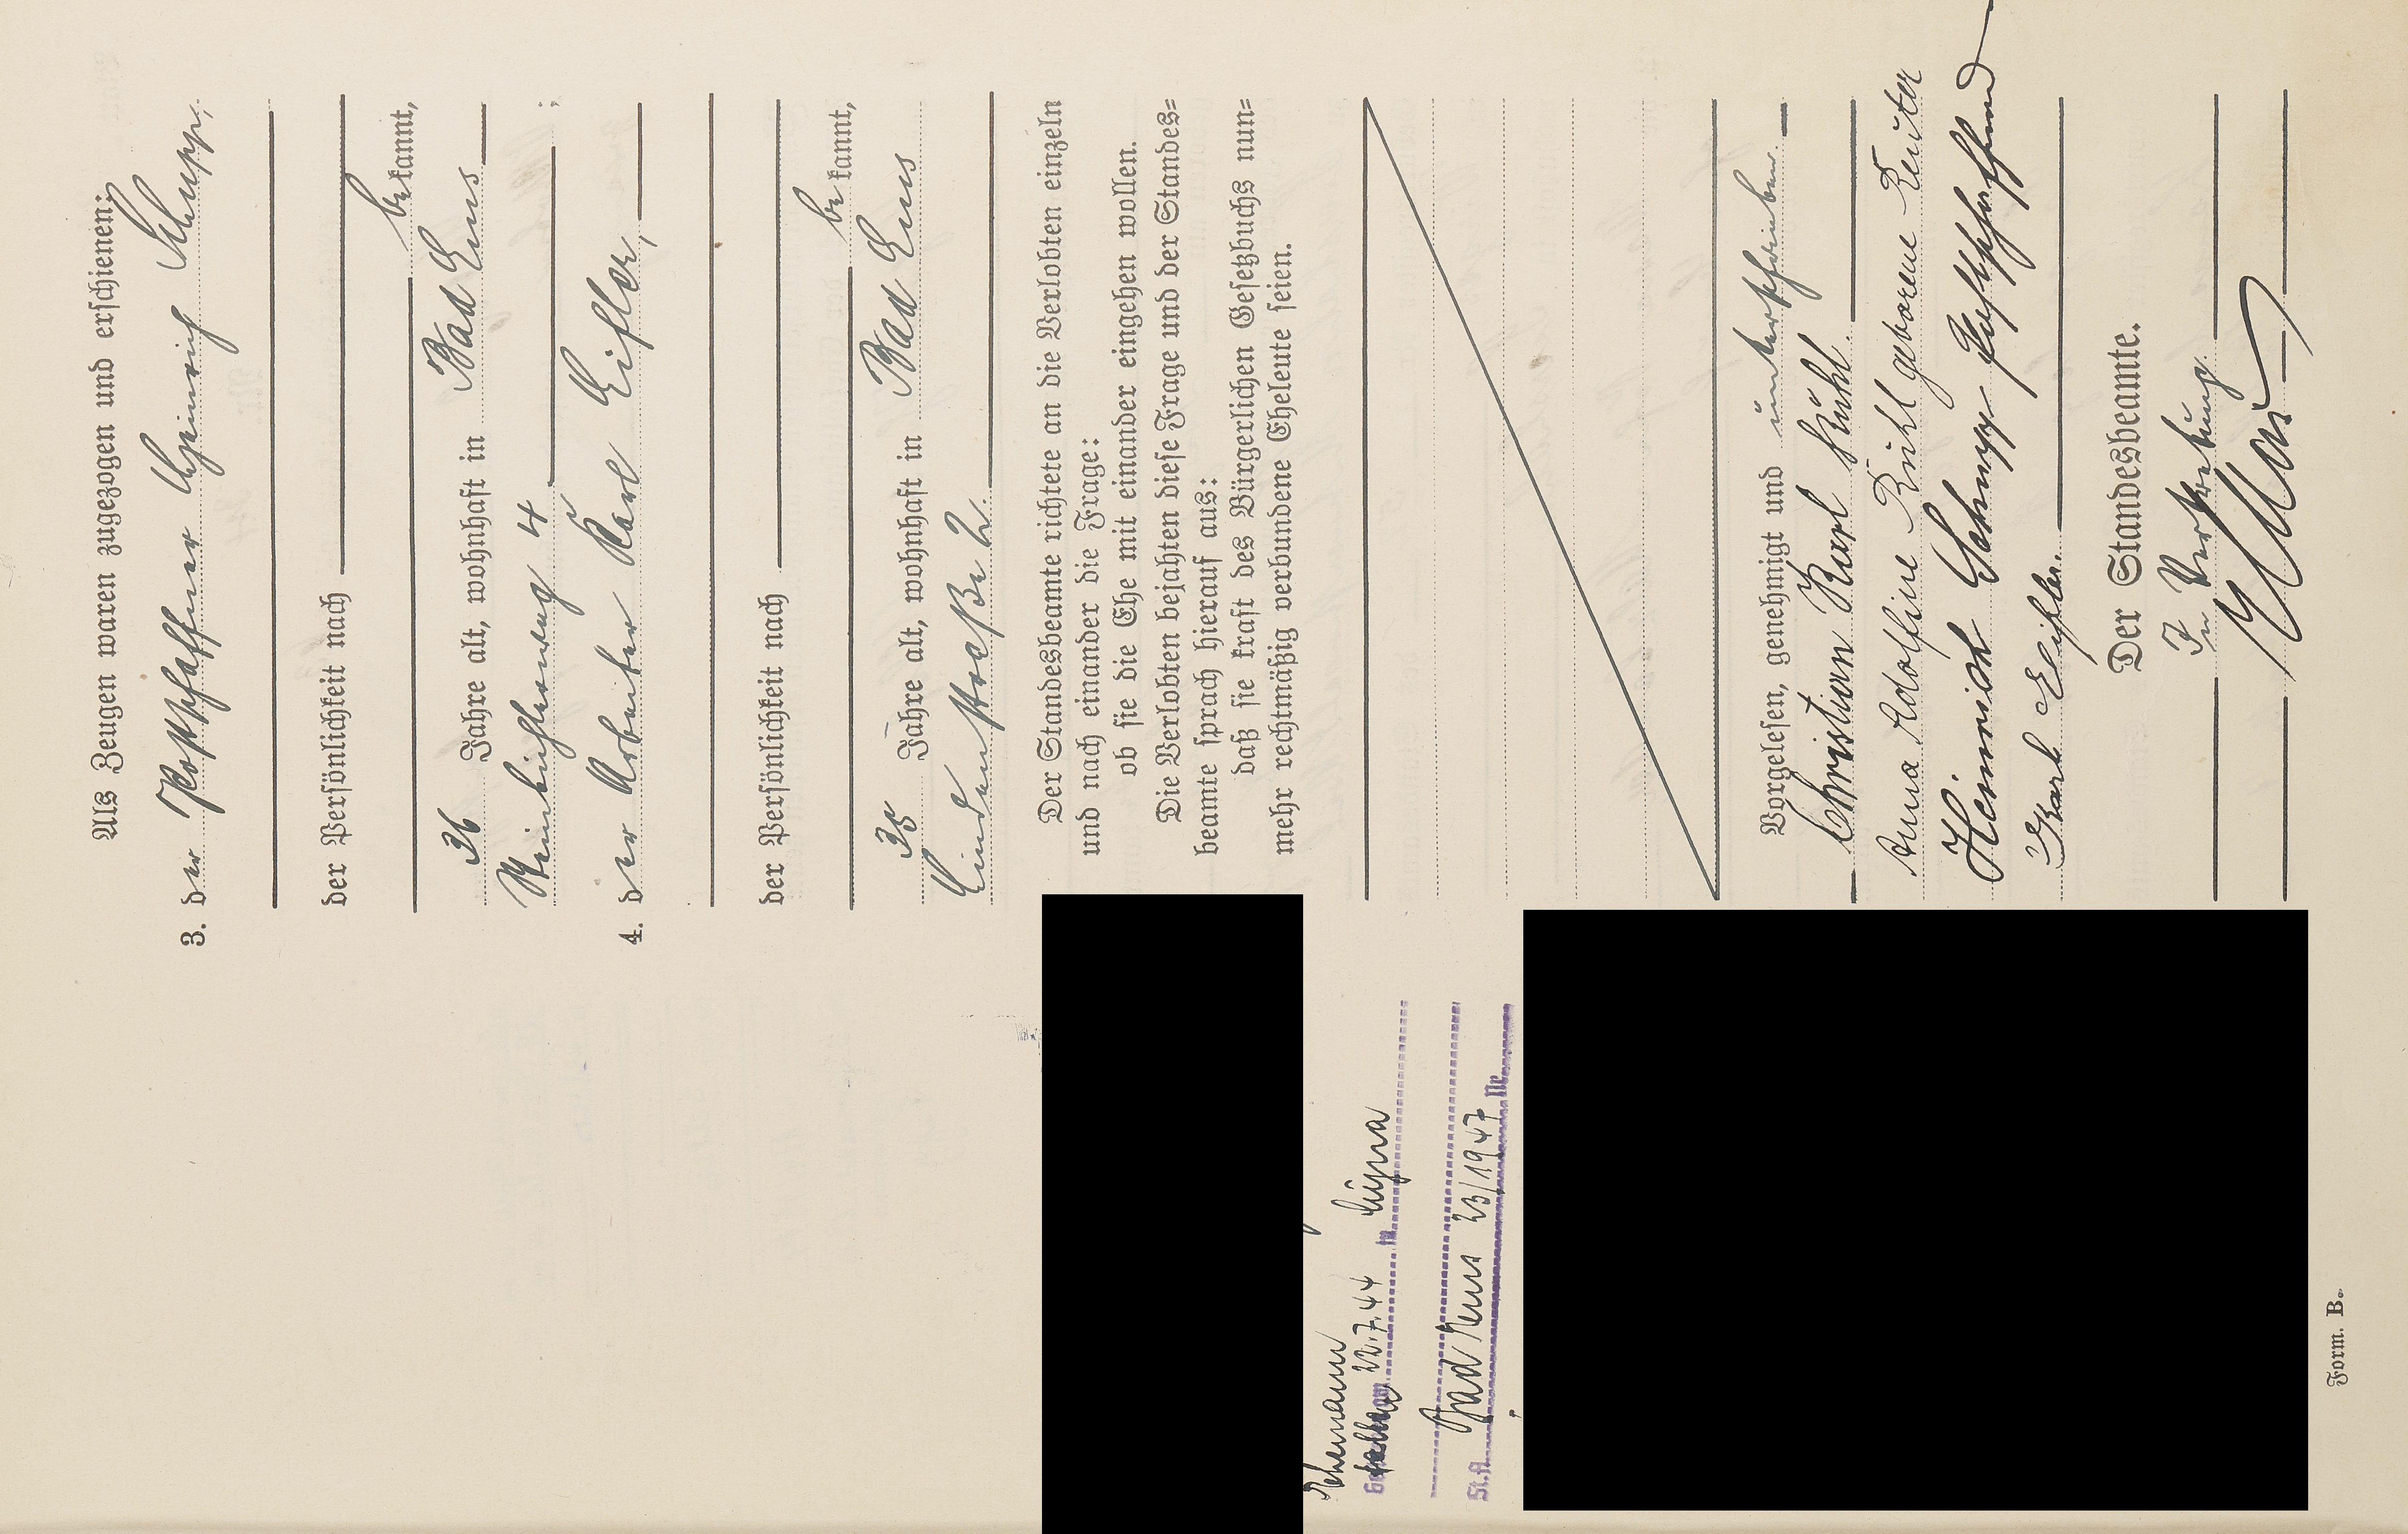 Als Zeugen waren zugezogen und erschienen:
3. der Postschaffner Heinrich Schupp,
der Persönlichkeit nach
bekannt,
36 Jahre alt, wohnhaft in Bad Ems
4
4. der Arbeiter Karl Eifler,
der Persönlichkeit nach
bekannt,
Jahre alt, wohnhaft in Bad Ems
Lindenstraße 2.
Der Standesbeamte richtete an die Verlobten einzeln
und nach einander die Frage:
ob sie die Ehe mit einander eingehen wollen.
Die Verlobten bejahten diese Frage und der Standes=
beamte sprach hierauf aus:
daß sie kraft des Bürgerlichen Gesetzbuchs nun=
mehr rechtmäßig verbundene Eheleute seien.
Vorgelesen, genehmigt und unterschrieben.
Christian Karl Kühl.
Anna Adolfine Kühl geborene Reuter
Heinrich Schupp Postschaffner
Karl Eifler.
Der Standesbeamte.
In Vertretung.
Ehemann
am 22.7.44 in
St.A. Bad Ems 23/1947 Nr.
Form. B.